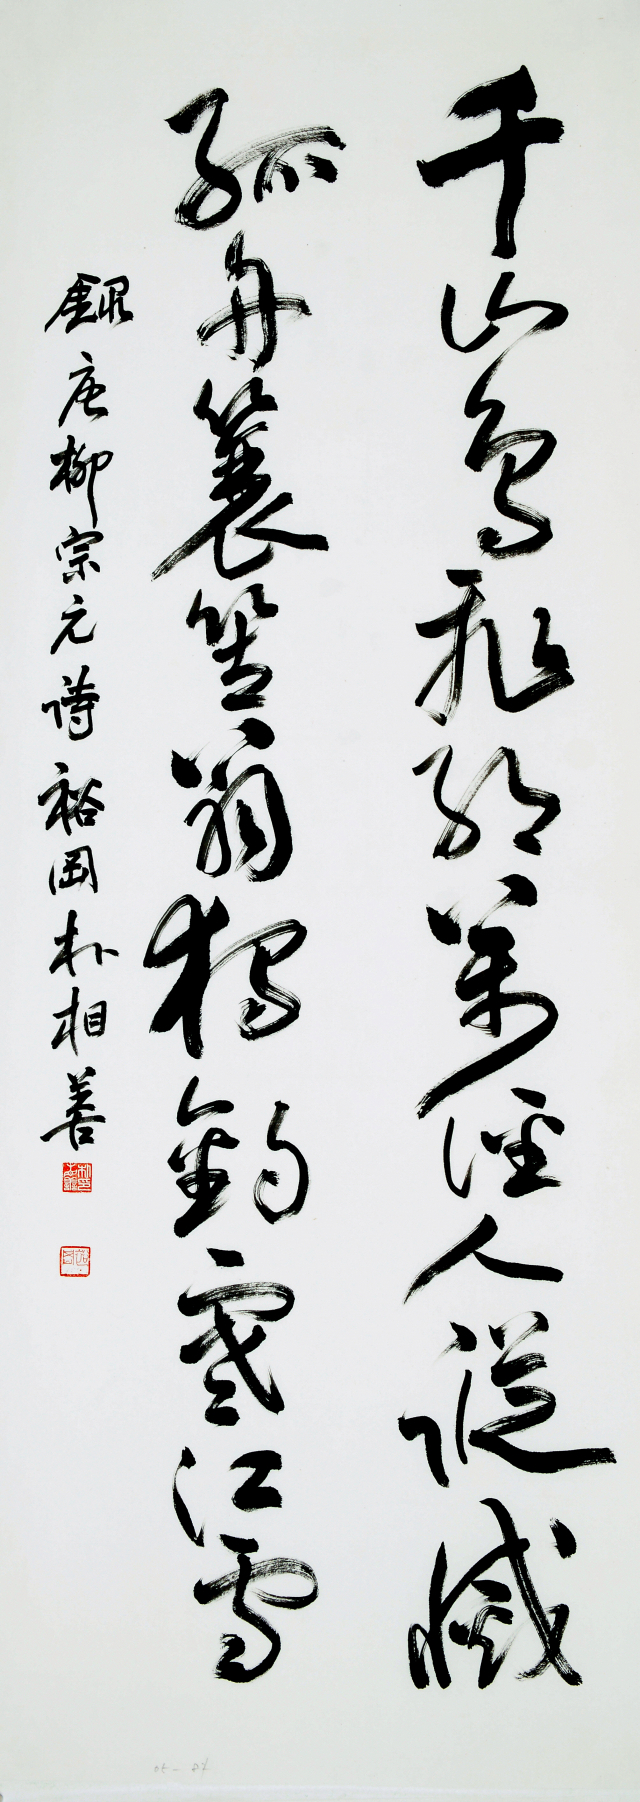 千山鳥飛絕萬徑人蹤滅
孤舟簑笠翁獨釣寒江雪
錄唐柳宗元詩 裕岡 朴相善